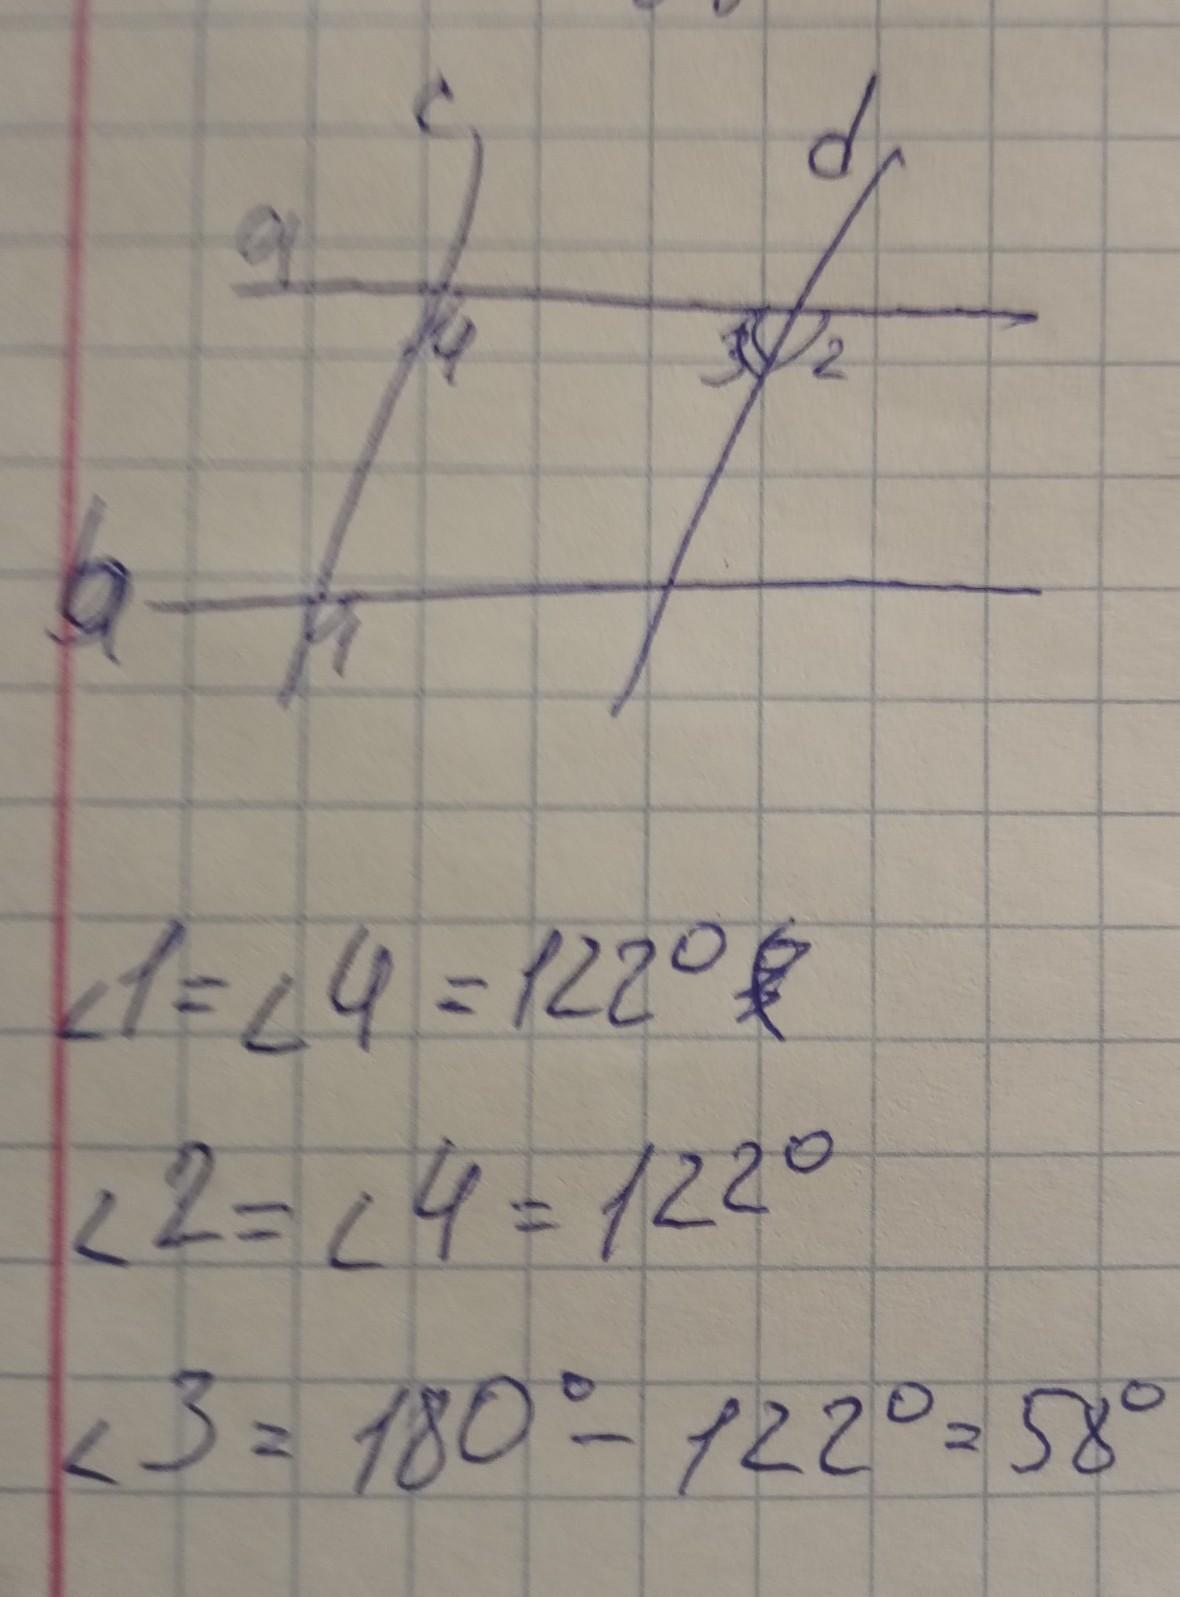 c
d
a
4
3
2
b
1
∠1 = ∠4 = 122°
∠2 = ∠4 = 122°
∠3 = 180° - 122° = 58°